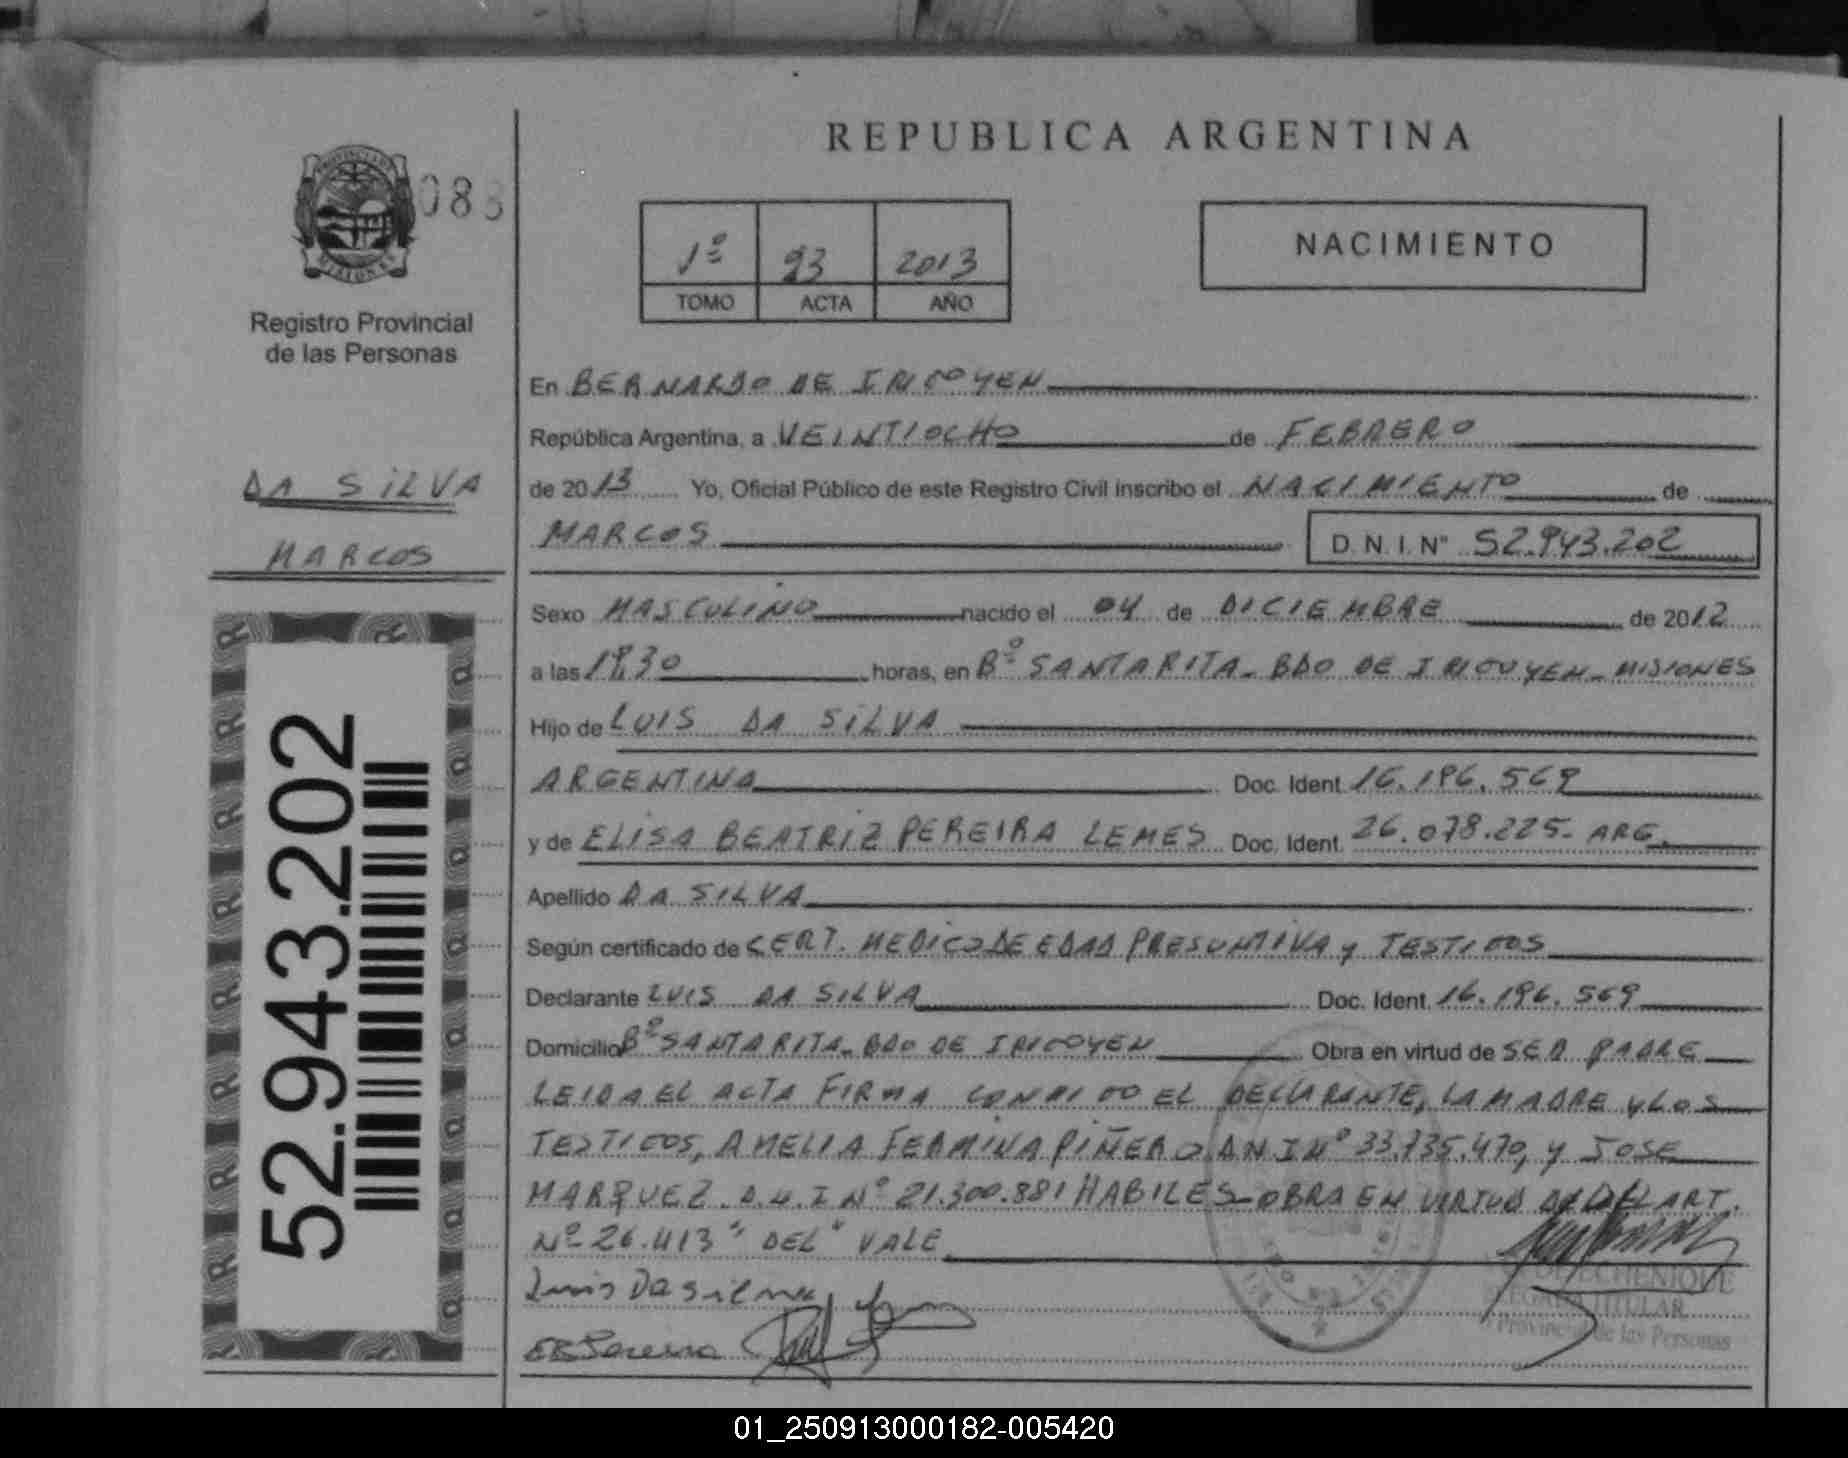 REPUBLICA ARGENTINA
PROVINCIA DE
MISIONES
083
1º 93 2013
TOMO ACTA AÑO
NACIMIENTO
Registro Provincial
de las Personas
DA SILVA
MARCOS
52.943.202
En BERNARDO DE IRIGOYEN
República Argentina, a VEINTIOCHO de FEBRERO
de 2013 Yo, Oficial Público de este Registro Civil inscribo el NACIMIENTO de
MARCOS D.N.I.Nº 52.943.202
Sexo MASCULINO nacido el 04 de DICIEMBRE de 2012
a las 19,30 horas, en Bº SANTA RITA - BDO DE IRIGOYEN - MISIONES
Hijo de LUIS DA SILVA
ARGENTINA Doc. Ident. 16.196.569
y de ELISA BEATRIZ PEREIRA LEMES Doc. Ident. 26.078.225 - ARG.
Apellido DA SILVA
Según certificado de CERT. MEDICO DE EDAD PRESUNTIVA y TESTIGOS
Declarante LUIS DA SILVA Doc. Ident. 16.196.569
Domicilio Bº SANTA RITA - BDO DE IRIGOYEN Obra en virtud de SER PADRE
LEIDA EL ACTA FIRMA CONMIGO EL DECLARANTE, LA MADRE y LOS
TESTIGOS, AMELIA FERMINA PIÑERO DNI Nº 33.735.470, y JOSE
MARQUEZ D.N.I Nº 21.300.881 HABILES - OBRA EN VIRTUD DEL ART.
Nº 26.413 "DEL" VALE
Luis Da Silva
EB Pereira
ECHENIQUE
DELEGADA TITULAR
Provincial de las Personas
01_250913000182-005420